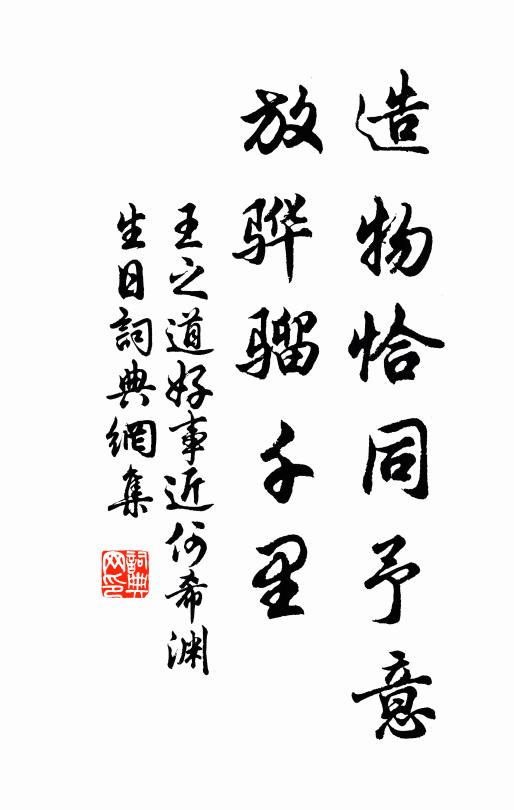 造物恰同予意
放骅骝千里
王之道好事近何希渊
生日詞典網集
詞典网印